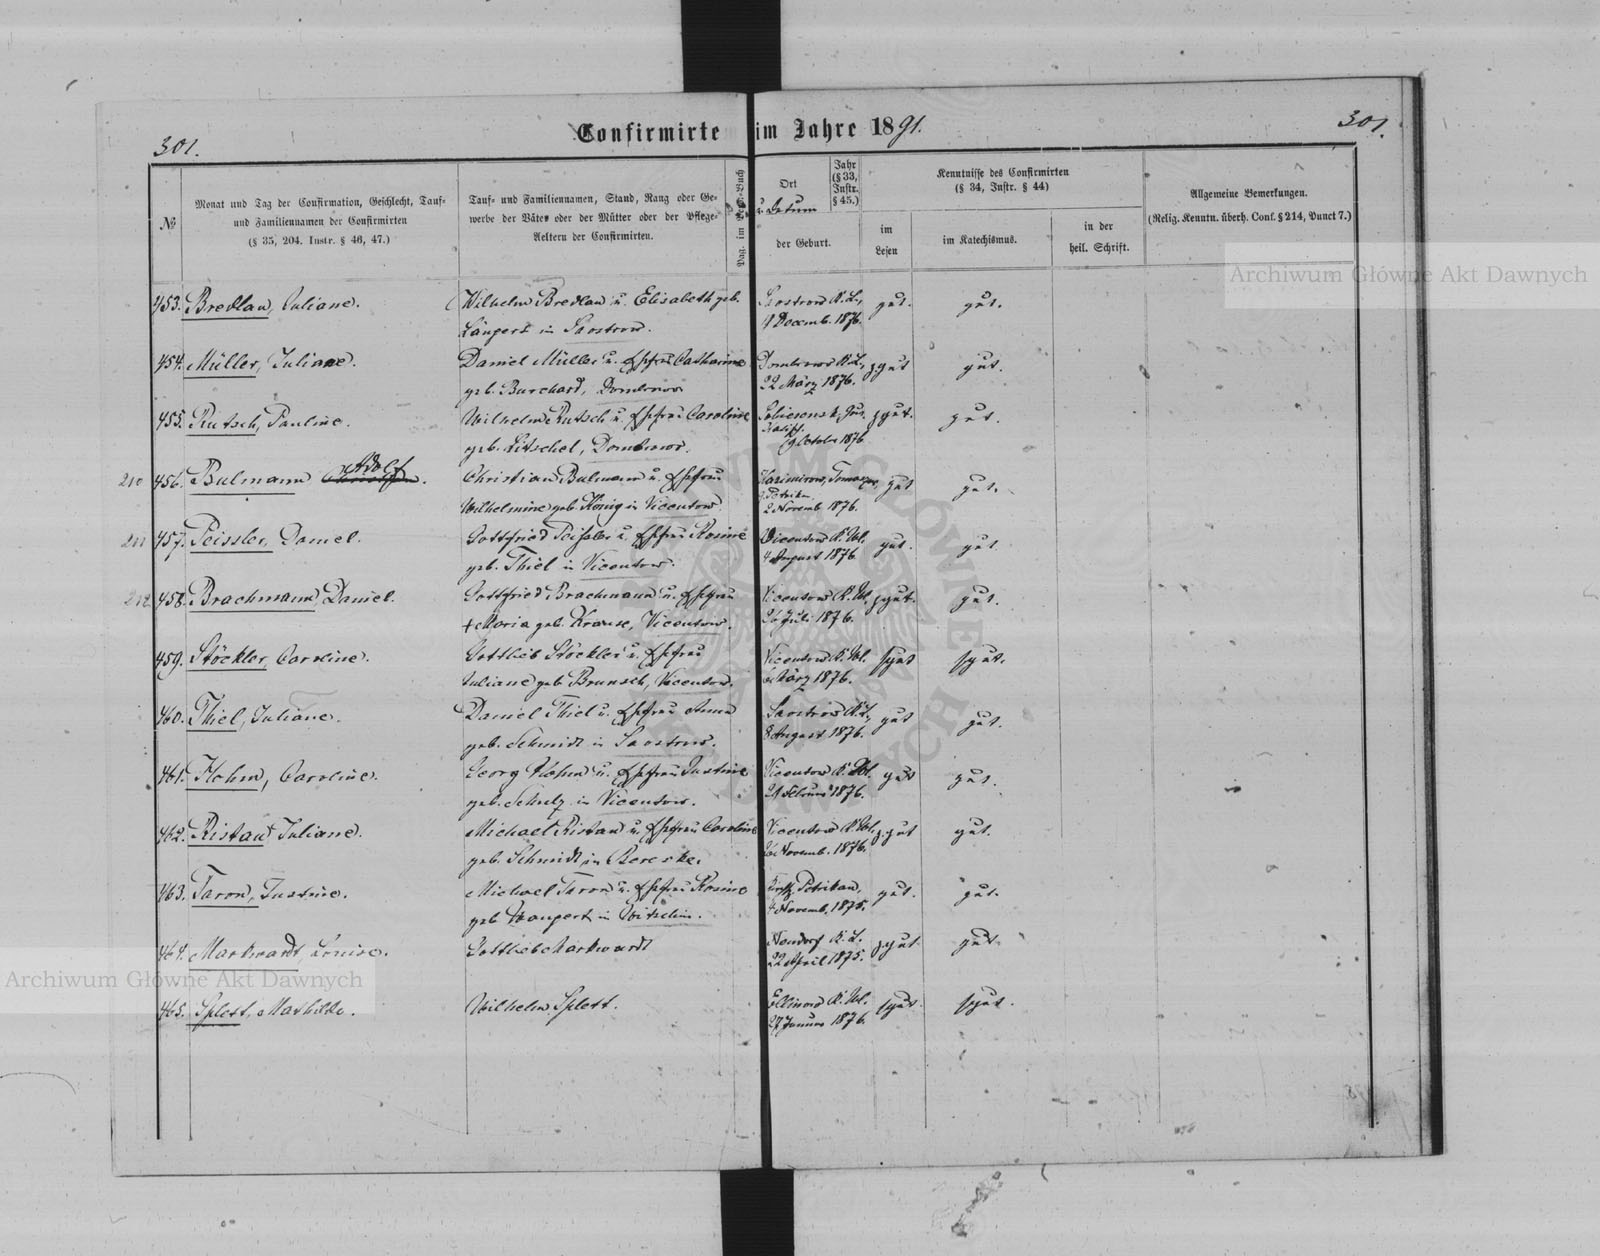 301.
Confirmirte im Jahre 1891.
301.
№
Monat und Tag der Confirmation, Geschlecht, Tauf-
und Familiennamen der Confirmirten
(§ 35, 204. Instr. § 46, 47.)
Tauf- und Familiennamen, Stand, Rang oder Ge-
werbe der Väter oder der Mütter oder der Pflege-
Aeltern der Confirmirten.
Ort
u. Datum
der Geburt.
Jahr
(§ 33,
Instr.
§ 45.)
Kenntnisse des Confirmirten
(§ 34, Instr. § 44)
im
Lesen
im Katechismus.
in der
heil. Schrift.
Allgemeine Bemerkungen.
(Relig. Kenntn. überh. Conf. § 214, Punct 7.)
453. Bredlau, Juliane.
Wilhelm Bredlau u. Elisabeth geb.
in Saostrow.
Saostrow K. L.,
Decemb. 1876.
gut.
gut.
454. Müller, Juliane.
Daniel Müller u. Ehefrau Catharine
geb. Burchard, Dombrowa
Dombrowa K. L.,
22 März 1876.
zgut
gut.
455. Rutsch, Pauline.
Wilhelm Rutsch u. Ehefrau Caroline
geb. Litschel, Dombrowa.
9 Octobr 1876
zgut.
gut.
210 456. Bulmann Adolf
Christian Bulmann u. Ehefrau
Wilhelmine geb. König in Vicentow.
Kazimirow,
2 Novemb 1876.
gut
gut.
211 457. Peissler, Daniel.
Gottfried Peissler u. Ehefrau Rosine
geb. Thiel in Vicentow.
Vicentow K. Wl.
4 August 1876
gut.
gut
212 458. Brachmann, Daniel.
Gottfried Brachmann u. Ehefrau
+ Maria geb. Krause, Vicentow.
Vicentow K. Wl.
26 Juli 1876.
zgut.
gut.
459. Stöckler, Caroline.
Gottlieb Stöckler u. Ehefrau
Juliane geb. Brunsch, Vicentow.
Vicentow K. Wl.
März 1876.
sgut
sgut.
460. Thiel, Juliane.
Daniel Thiel u. Ehefrau Anna
geb. Schmidt in Saostrow.
Saostrow K. L.
8 August 1876.
gut
gut.
461. Hohm, Caroline.
Georg Hohm u. Ehefrau Justine
geb. Schulz in Vicentow.
Vicentow K. Wl.
21 Februar 1876.
gut
gut.
462. Ristau Juliane.
Michael Ristau u. Ehefrau Caroline
geb. Schmidt in
Vicentow K. Wl.
Novemb. 1876.
z.gut
gut.
463. Taron, Justine.
Michael Taron u. Ehefrau Rosine
geb. in
Petrikau,
4 Novemb. 1875.
gut.
gut.
464. Markwardt, Louise.
Gottlieb Markwardt
Neudorf K. L.
22 April 1875.
zgut.
gut.
465. Splest, Mathilde.
Wilhelm Splest.
K. Wl.
27 Januar 1876.
sgut.
sgut.
Archiwum Główne Akt Dawnych
Archiwum Główne Akt Dawnych